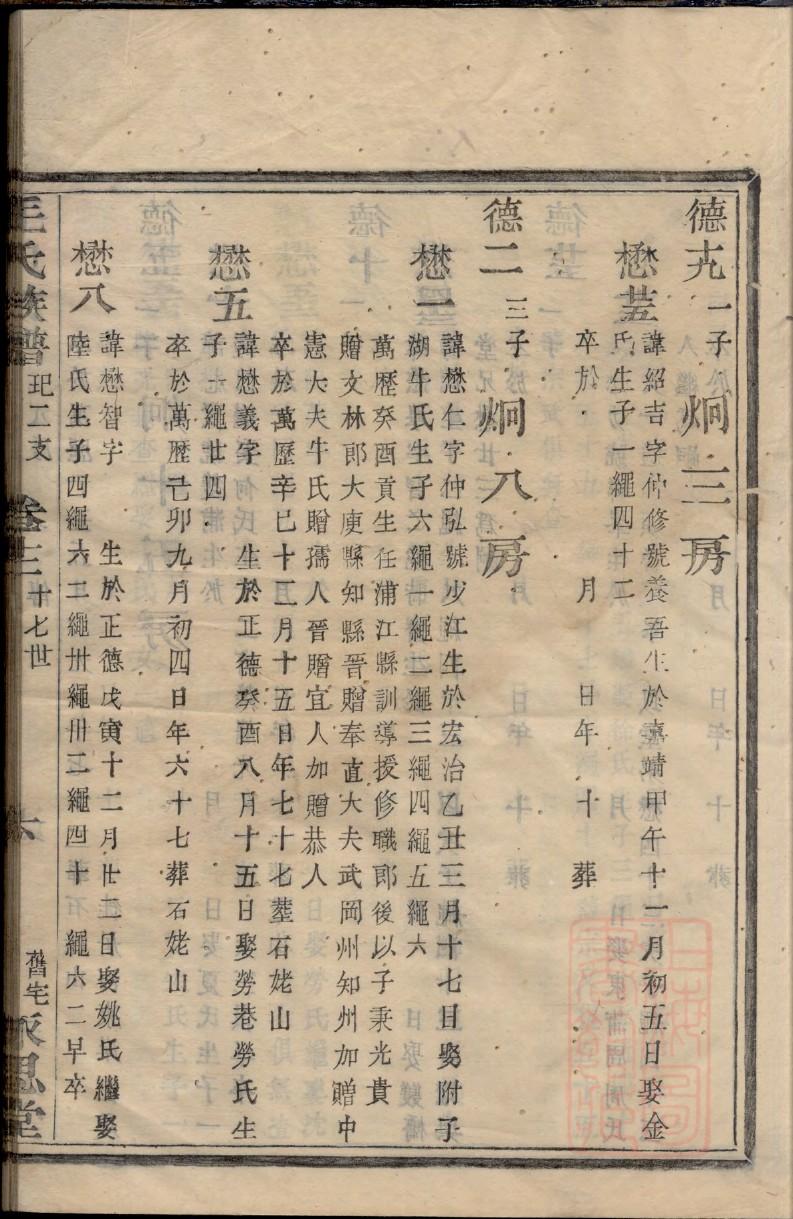 德六一子炯三房
懋荁諱紹吉字仲修號養吾生於嘉靖甲午十二月初五日娶金
氏生子一繩四十二
卒於 月 日年 十 葬
德二三子炯八房
懋一諱懋仁字仲弘號少江生於宏治乙丑三月十七日娶附子
湖牛氏生子六繩一繩二繩三繩四繩五繩六
萬歷癸酉貢生任浦江縣訓導授修職郎後以子秉光貴
贈文林郎大庾縣知縣晉贈奉直大夫武岡州知州加贈中
憲大夫牛氏贈孺人晉贈宜人加贈恭人
卒於萬歷辛巳十二月十五日年七十七葬石姥山
懋五諱懋義字 生於正德癸酉八月十五日娶勞巷勞氏生
子一繩廿四
卒於萬歷己卯九月初四日年六十七葬石姥山
懋八諱懋智字 生於正德戊寅十二月廿二日娶姚氏繼娶
陸氏生子四繩六二繩卅繩卅二繩四十 繩六二早卒
王氏族譜 玘二支 卷十二 十七世 六 舊宅 永思堂